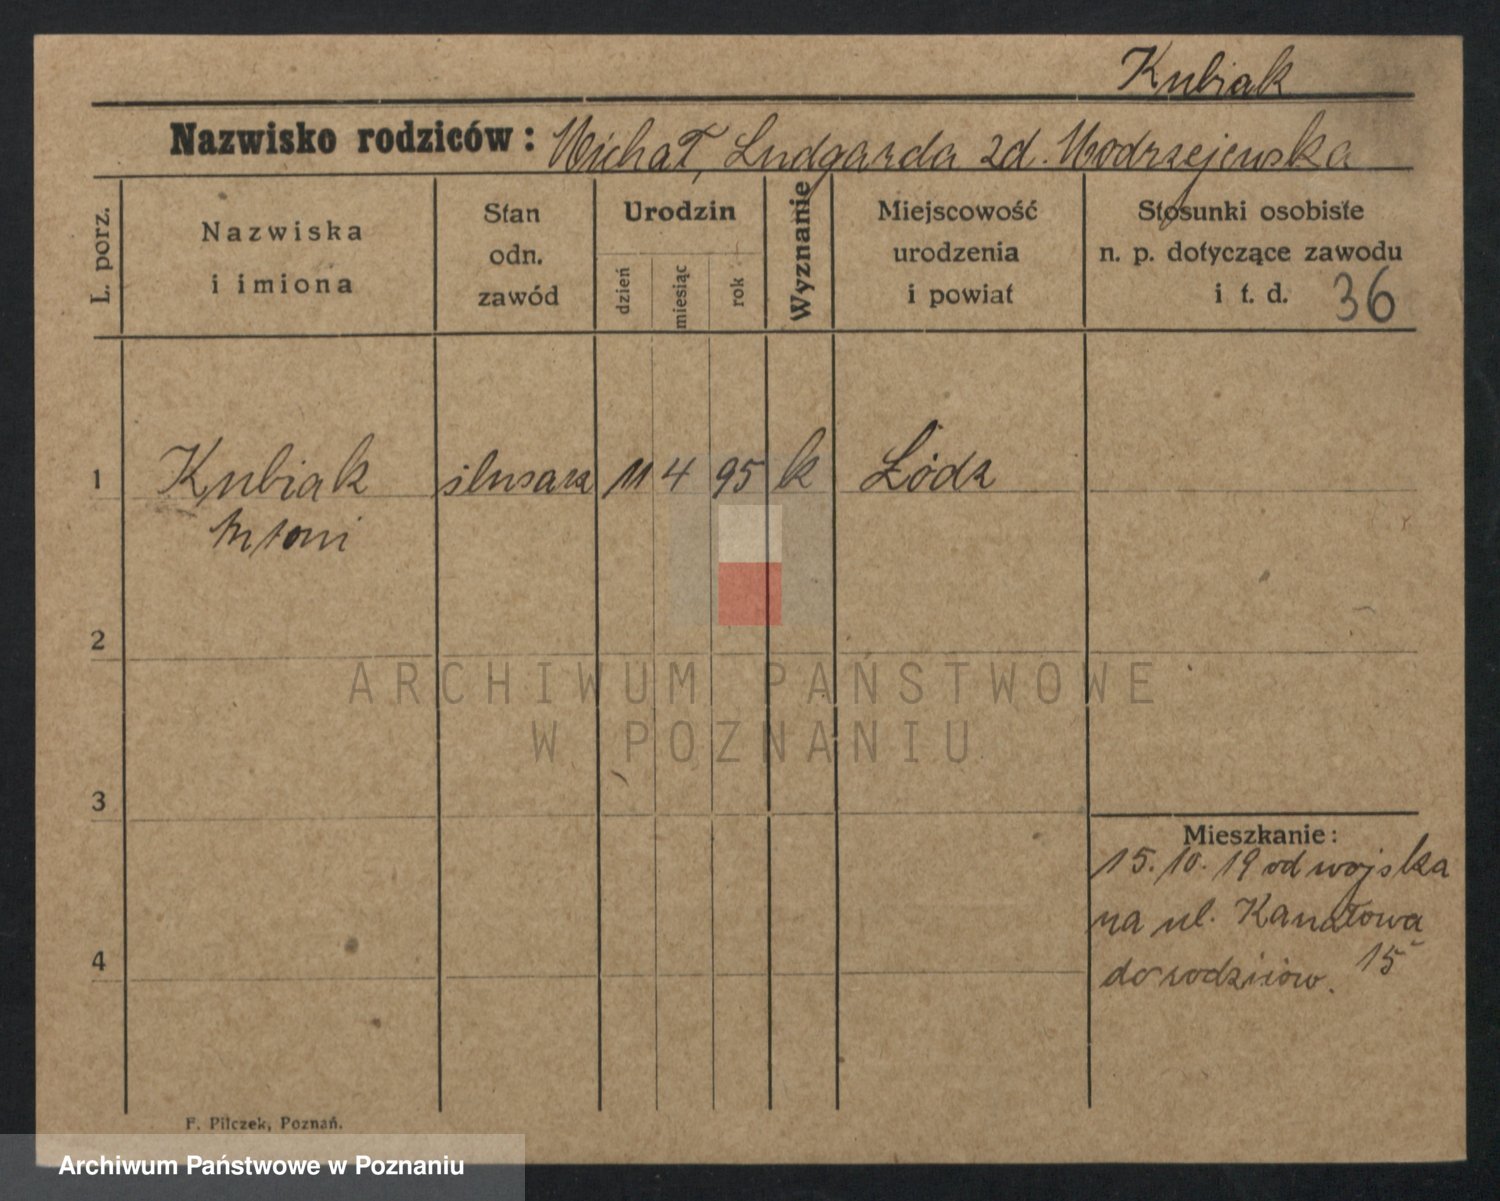 Kubiak
Nazwisko rodziców: Michał, Ludgarda zd. Modrzejewska
L. porz.
Nazwiska
i imiona
Stan
odn.
zawód
Urodzin
dzień
miesiąc
rok
Wyznanie
Miejscowość
urodzenia
i powiat
Stosunki osobiste
n. p. dotyczące zawodu
i t. d. 36
1 Kubiak ślusarz 11 4 95 k Łódz
Antoni
2
ARCHIWUM PAŃSTWOWE
W POZNANIU
3
Mieszkanie:
15.10.19 od wojska
na ul. Kanałowa
15
do rodziców.
4
F. Pilczek, Poznań.
Archiwum Państwowe w Poznaniu